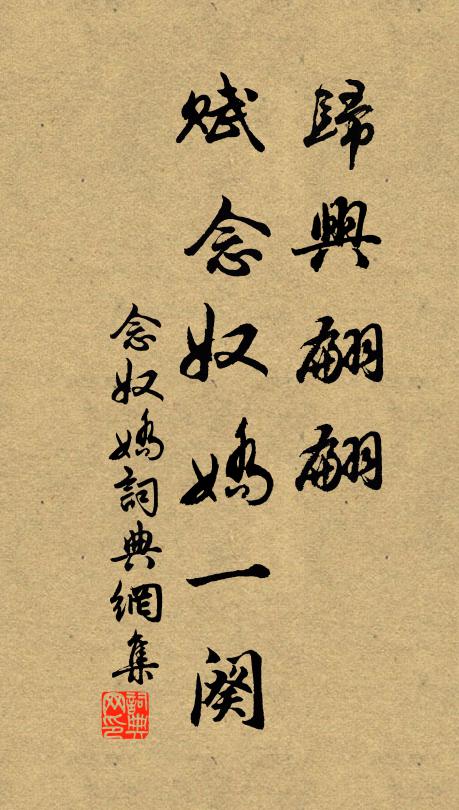 歸興翩翩
賦念奴嬌一闋
念奴嬌詞典網集
詞典
网印